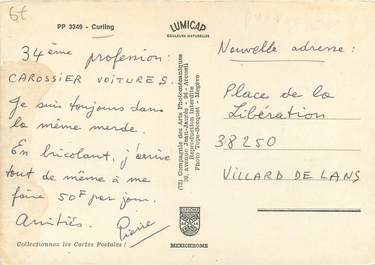 6€
PP 3349 - Curling
34ème profession:
CAROSSIER VOITURES.
Je suis toujours dans
la même merde.
En bricolant, j'arrive
tout de même à me
faire 50F par jour.
Amitiés. Pierre
Collectionnez les Cartes Postales !
LUMICAP
COULEURS NATURELLES
(73) Compagnie des Arts Photomécaniques
30, avenue Jean-Jaurès - 94 - Arcueil
Reproduction interdite
Photo Tops-Bocquet - Megève
MEXICHROME
Nouvelle adresse:
Place de la
Libération
38250
VILLARD DE LANS